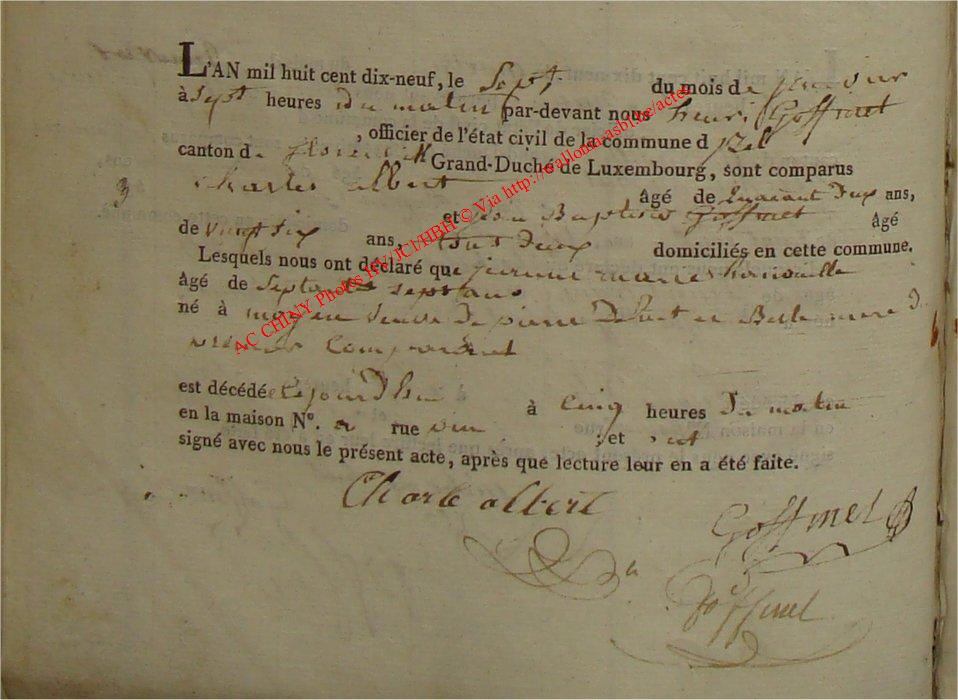 L'AN mil huit cent dix-neuf, le Sept du mois de janvier
à Sept heures du matin par-devant nous henri Goffinet
, officier de l'état civil de la commune d izel
canton de florenville Grand-Duché de Luxembourg, sont comparus
3 Charles albert âgé de quarant deux ans,
et jean Baptiste Goffinet âgé
de vingt six ans, tous deux domiciliés en cette commune.
Lesquels nous ont déclaré que jeanne marie
âgé de Septante sept ans
né à moyen veuve de pierre en Belle mere du
premier comparant
est décédée ce jourd'hui à cinq heures du matin
en la maison N°. rue ; et ont
signé avec nous le présent acte, après que lecture leur en a été faite.
Charle albert
Goffinet
Goffinet
AC CHINY Photos HV/JCI/HBH © Via http://wallonia-asbl.be/actes